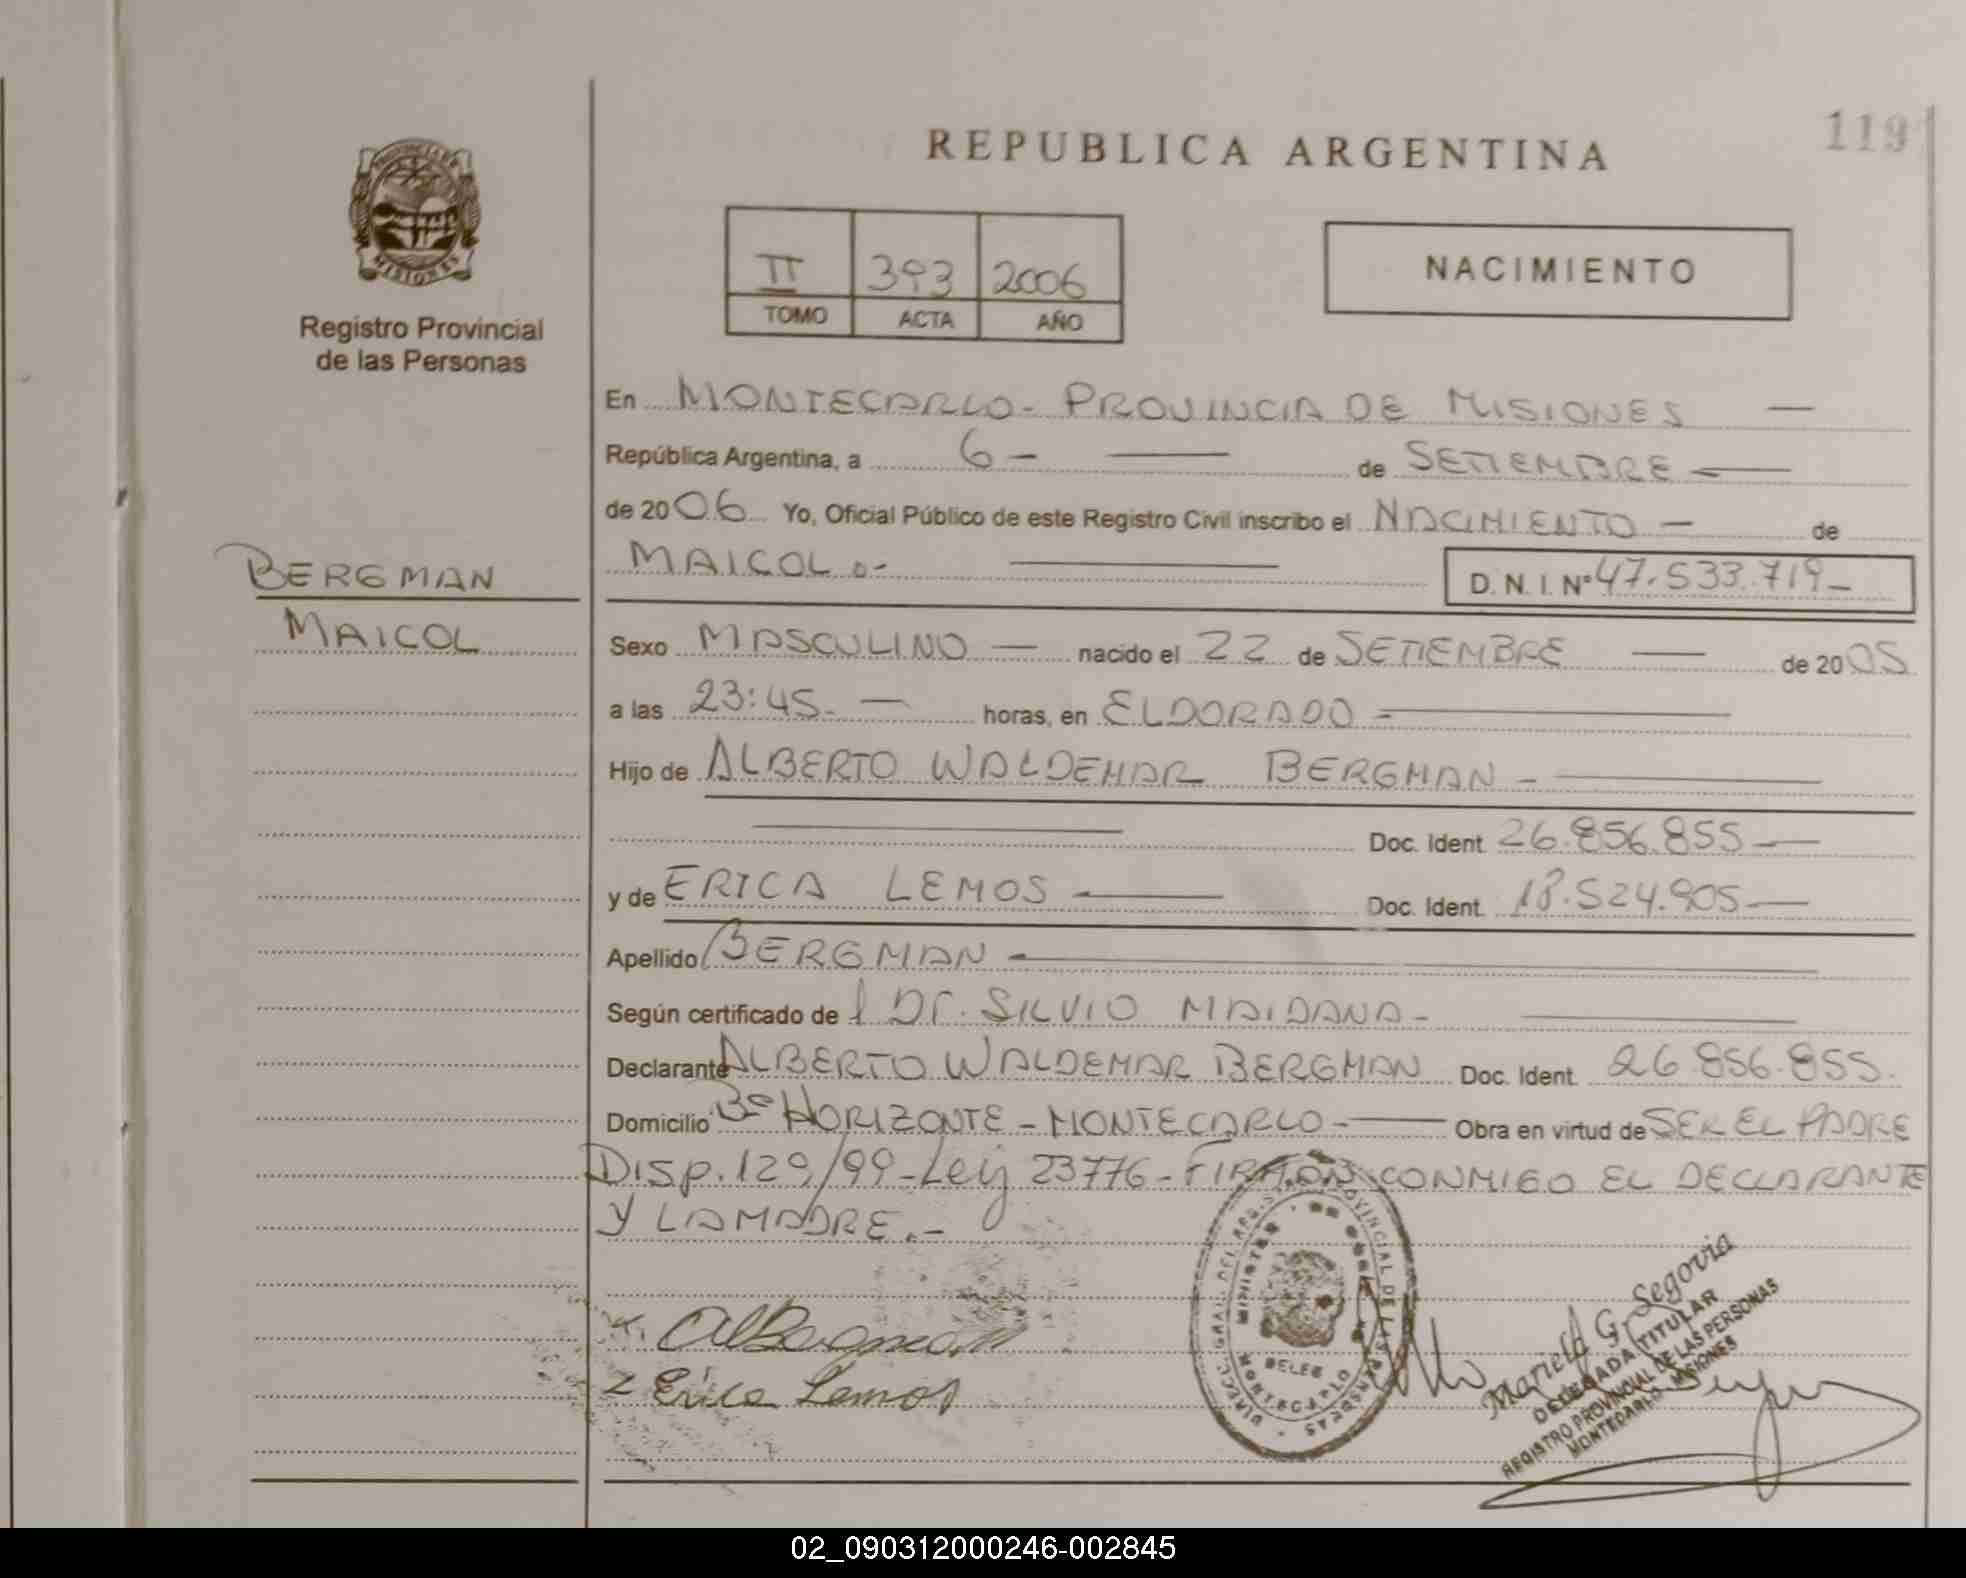 119
REPUBLICA ARGENTINA
PROVINCIA DE
MISIONES
Registro Provincial
de las Personas
II 393 2006
TOMO ACTA AÑO
NACIMIENTO
En MONTECARLO - PROVINCIA DE MISIONES —
República Argentina, a 6 - — de SETIEMBRE —
de 2006 Yo, Oficial Público de este Registro Civil inscribo el NACIMIENTO — de
MAICOL.- — D. N. I. Nº 47.533.719-
BERGMAN
MAICOL
Sexo MASCULINO — nacido el 22 de SETIEMBRE — de 2005
a las 23:45. — horas, en ELDORADO -
Hijo de ALBERTO WALDEMAR BERGMAN -
Doc. Ident. 26.856.855 —
y de ERICA LEMOS — Doc. Ident. 18.524.905 —
Apellido BERGMAN -
Según certificado del Dr. SILVIO MAIDANA -
Declarante ALBERTO WALDEMAR BERGMAN Doc. Ident. 26.856.855.
Domicilio Bº HORIZONTE - MONTECARLO - Obra en virtud de SER EL PADRE
DISP. 129/99 - Ley 23776 - FIRMAN CONMIGO EL DECLARANTE
Y LA MADRE.-
AlBergman
Erica Lemos
MONTECARLO
Mariela G. Segovia
DELEGADA TITULAR
REGISTRO PROVINCIAL DE LAS PERSONAS
MONTECARLO - MISIONES
02_090312000246-002845